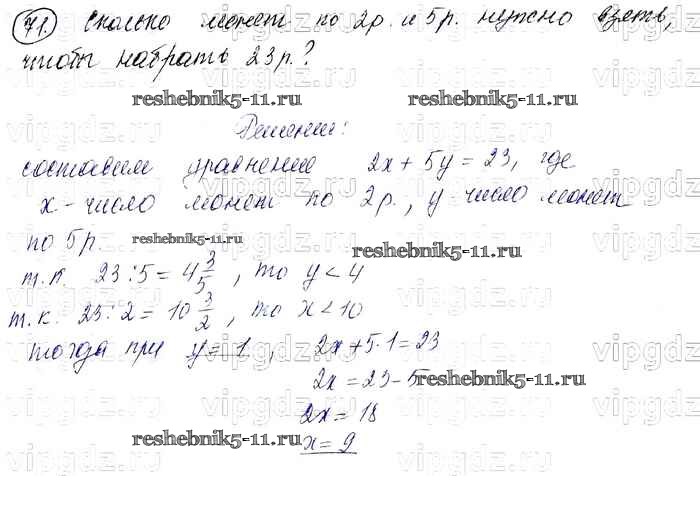 71. Сколько монет по 2р. и 5р. нужно взять,
чтобы набрать 23р.?
reshebnik5-11.ru reshebnik5-11.ru
Решение:
составим уравнение 2x + 5y = 23, где
x - число монет по 2р., y число монет
по 5р. reshebnik5-11.ru reshebnik5-11.ru
т.к. 23:5 = 4 3/5, то y < 4
т.к. 23:2 = 10 3/2, то x < 10
тогда при y = 1, 2x + 5·1 = 23
2x = 23 - 5 reshebnik5-11.ru
2x = 18
reshebnik5-11.ru x = 9
vipgdz.ru vipgdz.ru vipgdz.ru